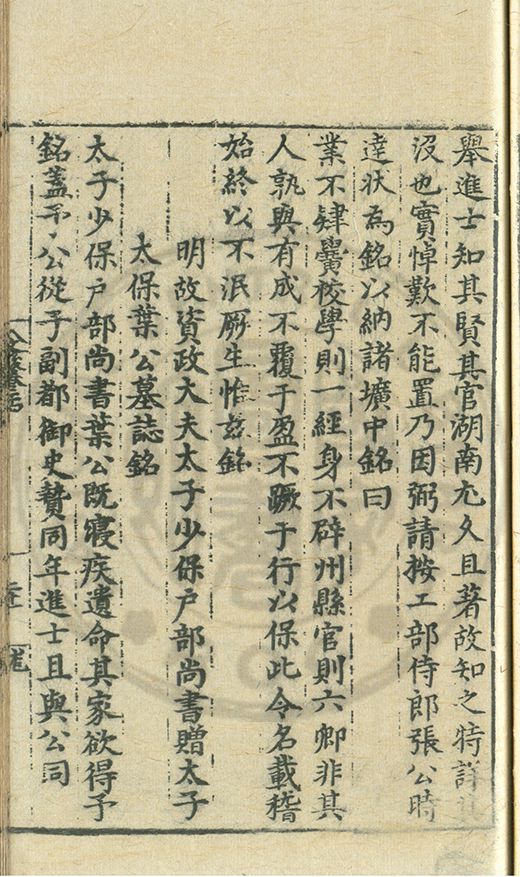 舉進士知其賢其官湖南尤久且著故知之特詳其
沒也實悼歎不能置乃因弼請按工部侍郎張公時
達狀為銘以納諸壙中銘曰
業不肄黌校學則一經身不辟州縣官則六卿非其
人孰與有成不覆于盈不蹶于行以保此令名載稽
始終以不泯厥生惟玆銘
明故資政大夫太子少保户部尚書贈太子
太保葉公墓誌銘
太子少保户部尚書葉公既寢疾遺命其家欲得予
銘蓋予公從子副都御史贄同年進士且與公同